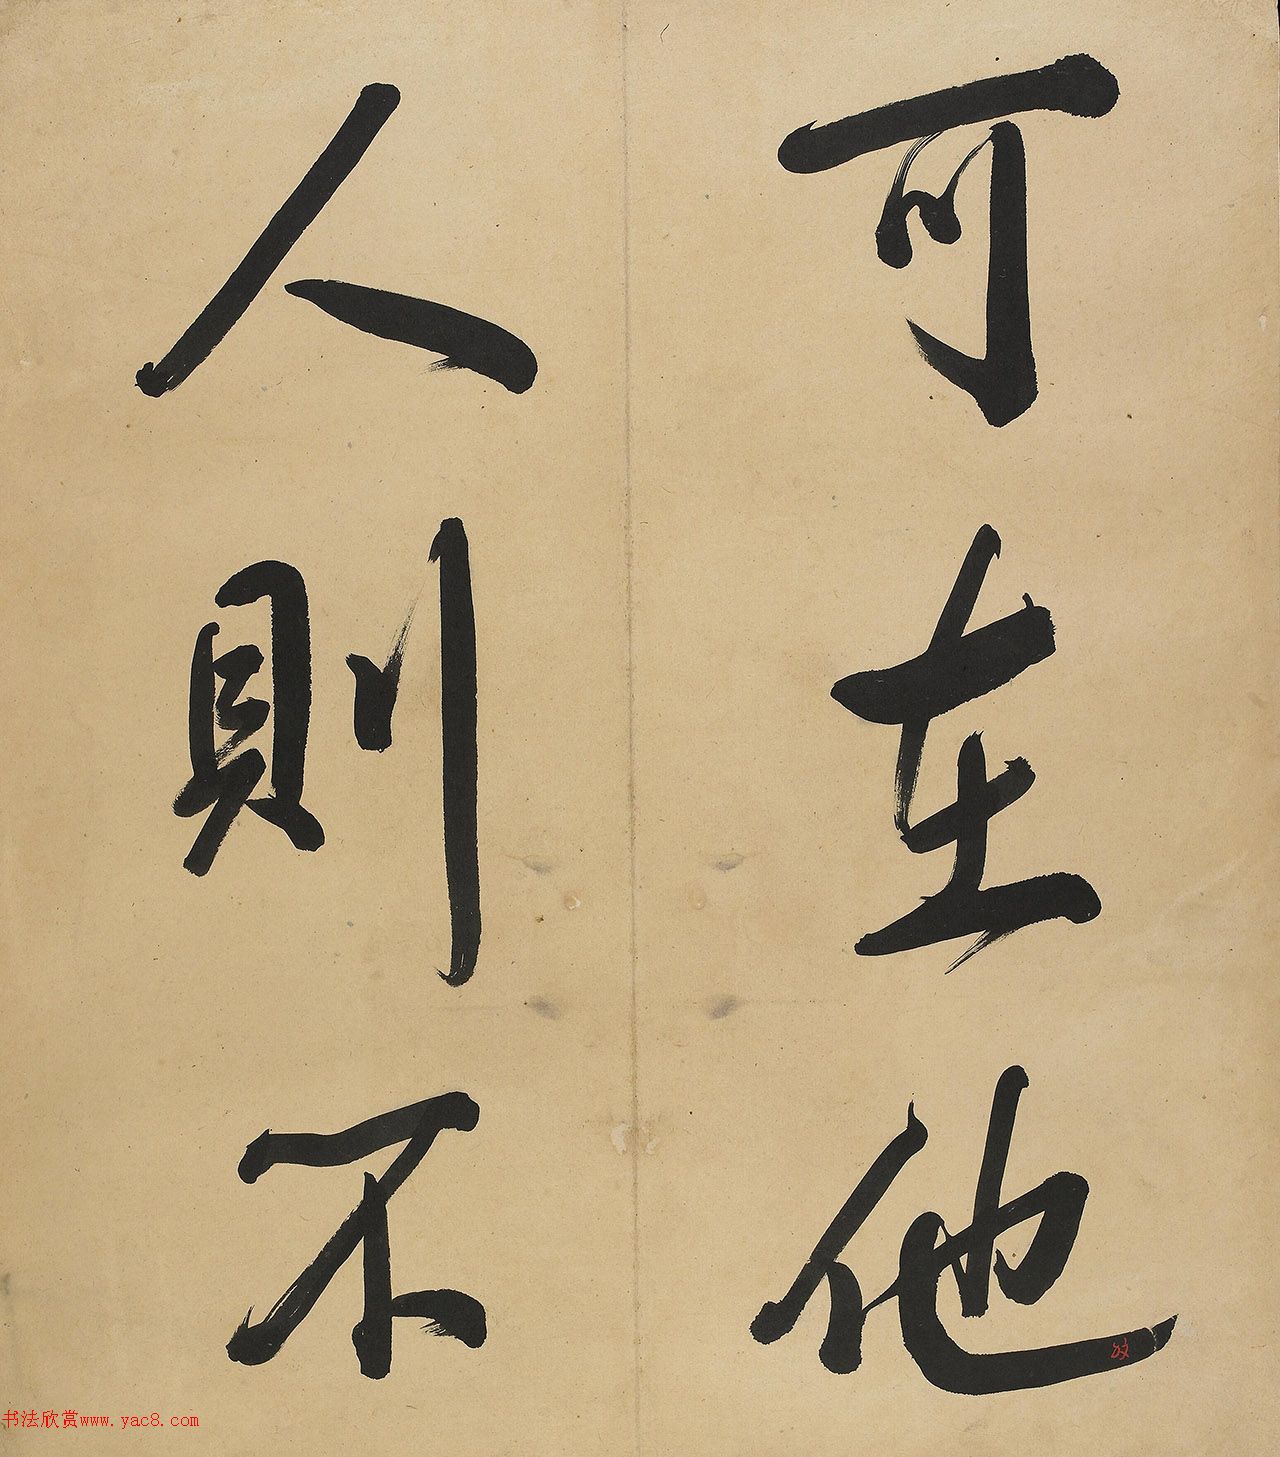 可在他
人則不
书法欣赏www.yac8.com